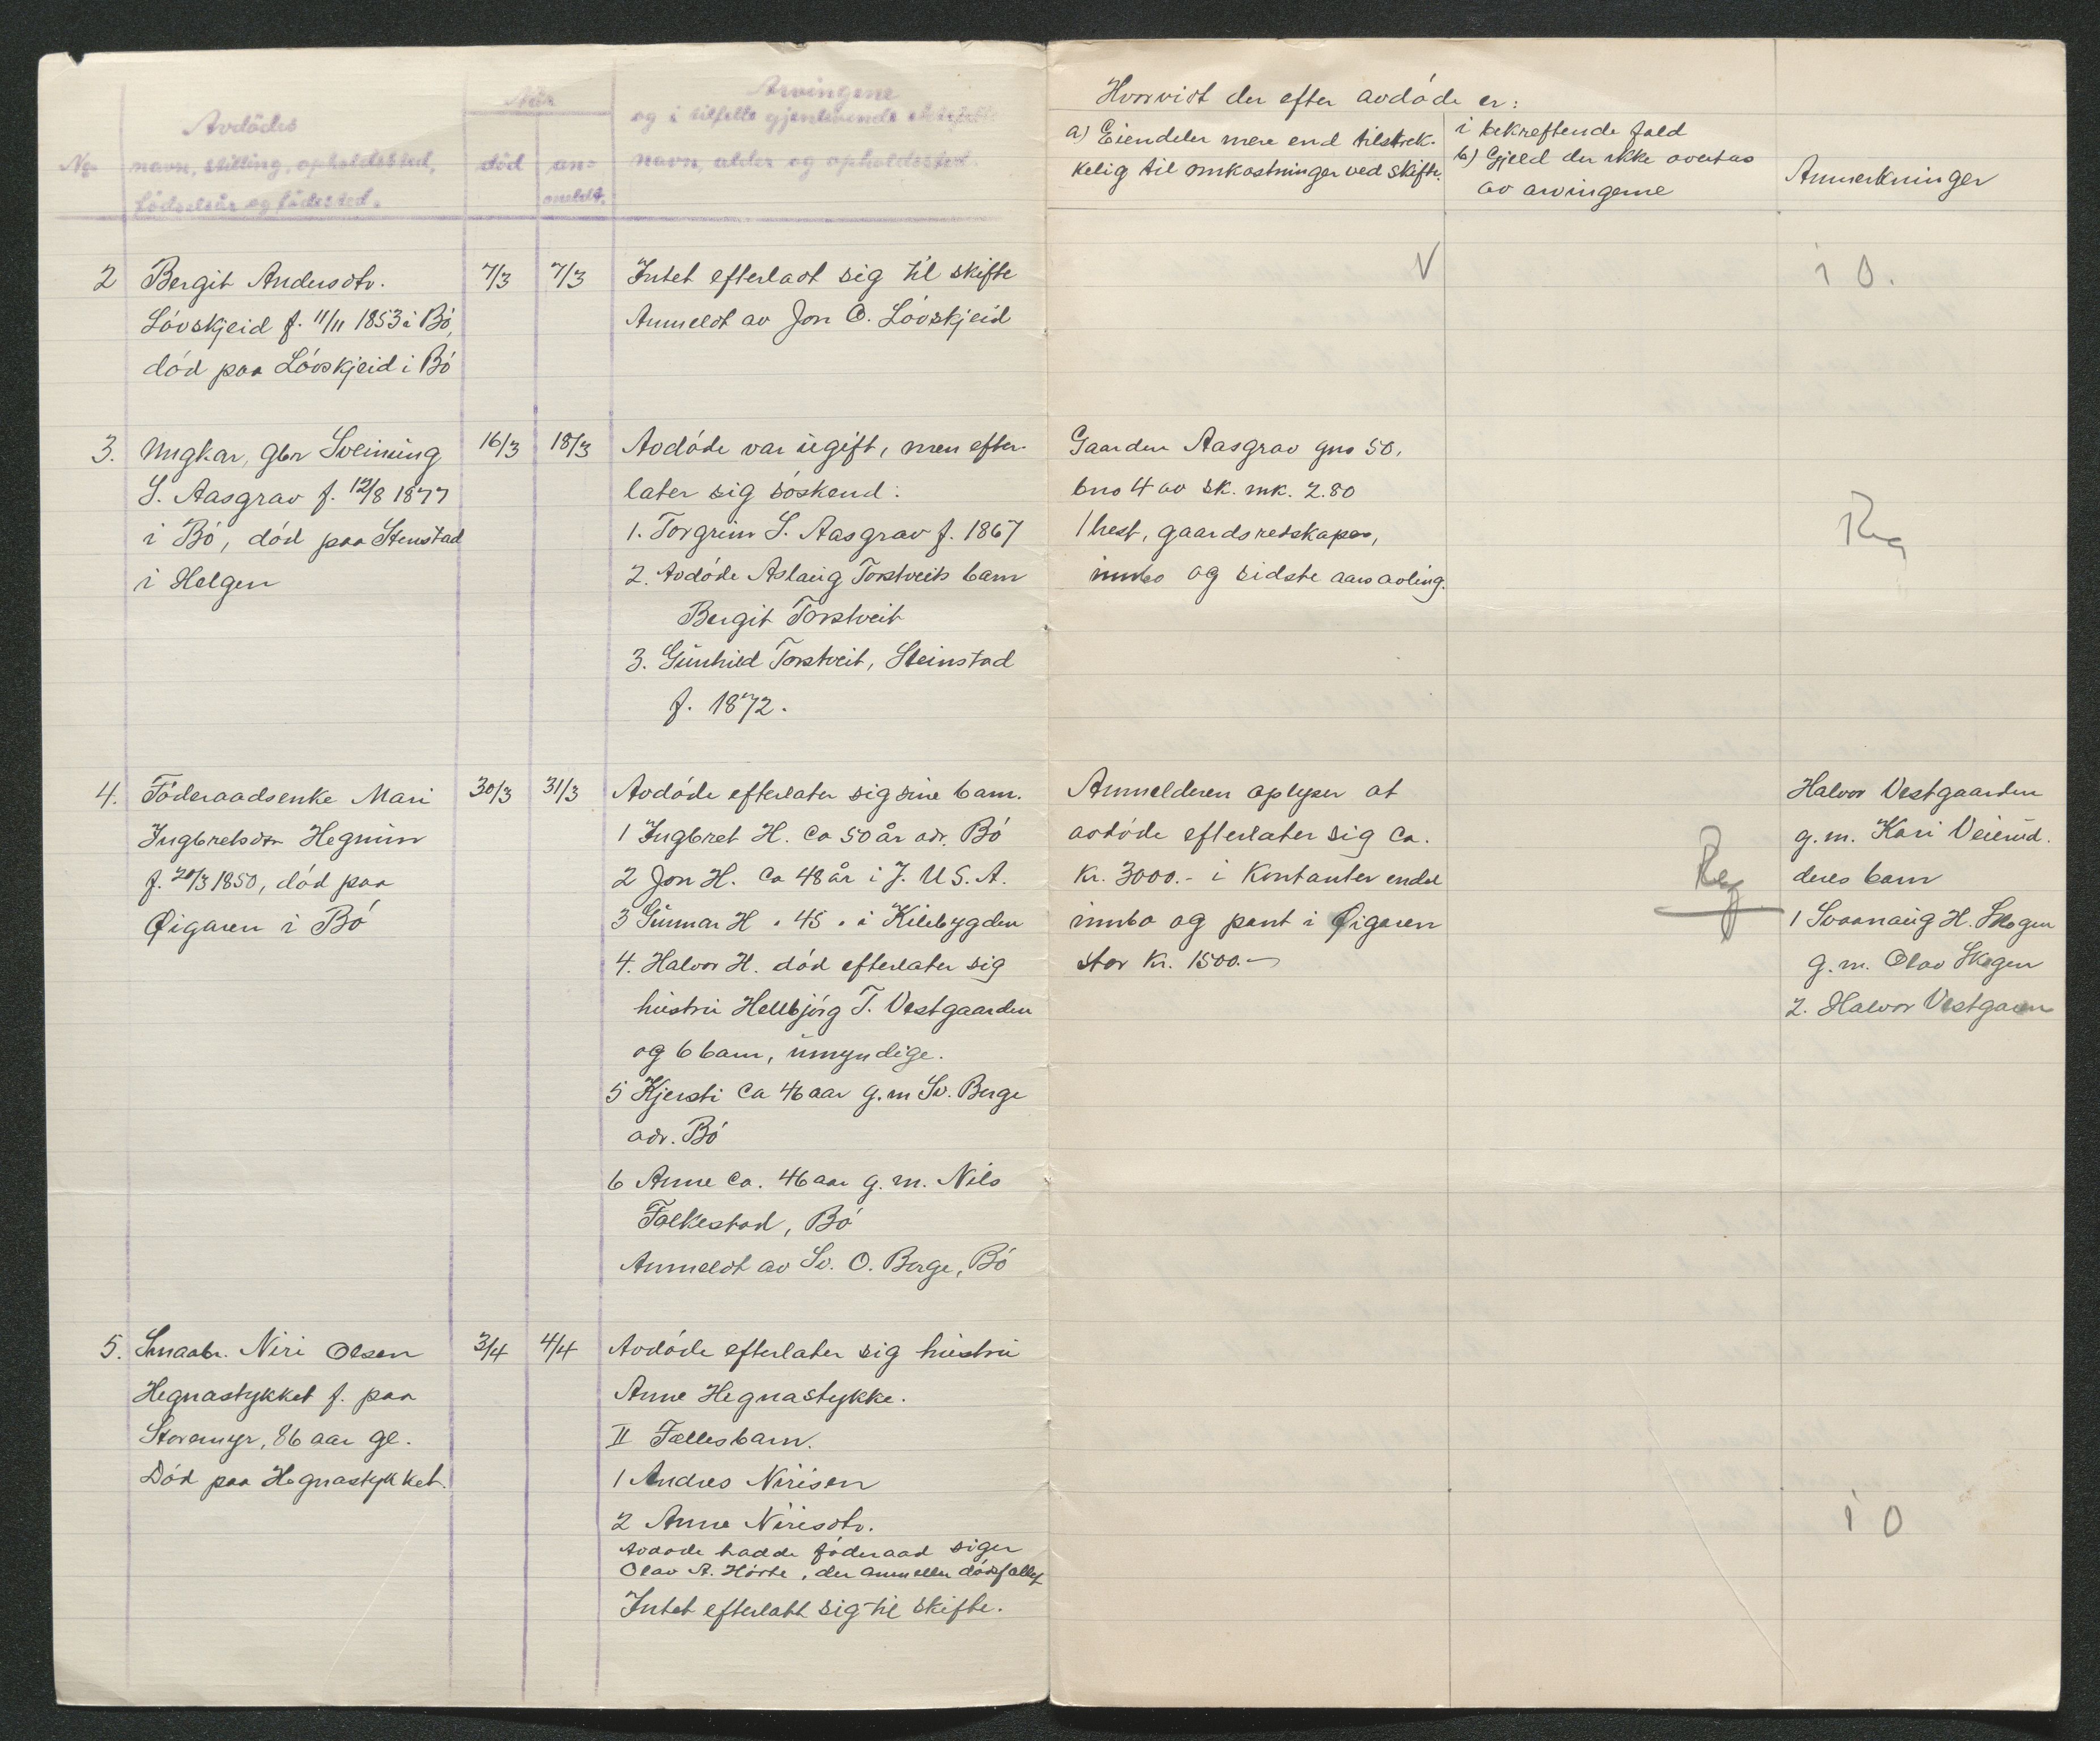 Avdödes
navn, stilling, opholdssted,
fødselsår og fødested.
No.
Når
död
an-
meldt.
Arvingene
og i tilfelle gjenlevende ektefelle
navn, alder og opholdssted.
Hvorvidt der efter avdöde er:
a) Eiendeler mere end tilstræk-
kelig til omkostninger ved skifte.
i bekreftende fald
b) Gjeld der ikke overtas
av arvingerne
Anmerkninger
2 Bergit Andersdtr.
Lövskjeid f. 11/11 1853 i Bö,
död paa Lövskjeid i Bö
7/3 7/3
Intet efterladt sig til skifte
Anmeldt av Jon O. Lövskjeid
V
i 0.
3. Ungkar, gbr Sveinung
S. Aasgrav f. 12/8 1877
i Bö, död paa Stenstad
i Helgen
16/3 18/3
Avdöde var ugift, men efter-
later sig söskend:
1. Torgrim S. Aasgrav f. 1867
2. Avdöde Aslaug Torstveits barn
Bergit Torstveit
3. Gunhild Torstveit, Steinstad
f. 1872.
Gaarden Aasgrav gno 50,
bno 4 av sk. mk. 2.80
1 hest, gaardsredskaper,
innbo og sidste aars avling.
Reg
4. Föderaadsenke Mari
Ingbretsdtr Hegnin
f. 20/3 1850, död paa
Øigaren i Bö
30/3 31/3
Avdöde efterlater sig sine barn.
1 Ingbret H. ca 50 år adr. Bö
2 Jon H. ca 48 år i J. U.S.A.
3 Gunnar H " 45 " i Kilebygden
4. Halvor H. död efterlater sig
hustru Hellbjörg T. Vestgaarden
og 6 barn, umyndige.
5 Kjersti ca 46 aar g.m Sv. Berge
adr. Bö
6 Anne ca. 46 aar g. m. Nils
Folkestad, Bö
Anmeldt av Sv. O. Berge, Bö
Anmelderen oplyser at
avdöde efterlater sig ca.
kr. 3000.- i kontanter endel
innbo og pant i Øigaren
stor kr. 1500.-
Reg
Halvor Vestgaarden
g.m. Kari Veierud.
deres barn
1 Svanaug H. Skogen
g.m. Olav Skogen
2. Halvor Vestgaren
5. Smaabr. Niri Olsen
Hegnastykket f. paa
Storemyr, 86 aar gl.
Död paa Hegnastykket.
3/4 4/4
Avdöde efterlater sig hustru
Anne Hegnastykke.
II Fællesbarn.
1 Andres Nirisen
2 Anne Nirisdtr.
Avdöde hadde föderaad siger
Olav A. Hörte, der anmelder dödsfallet
Intet efterlatt sig til skifte.
i 0